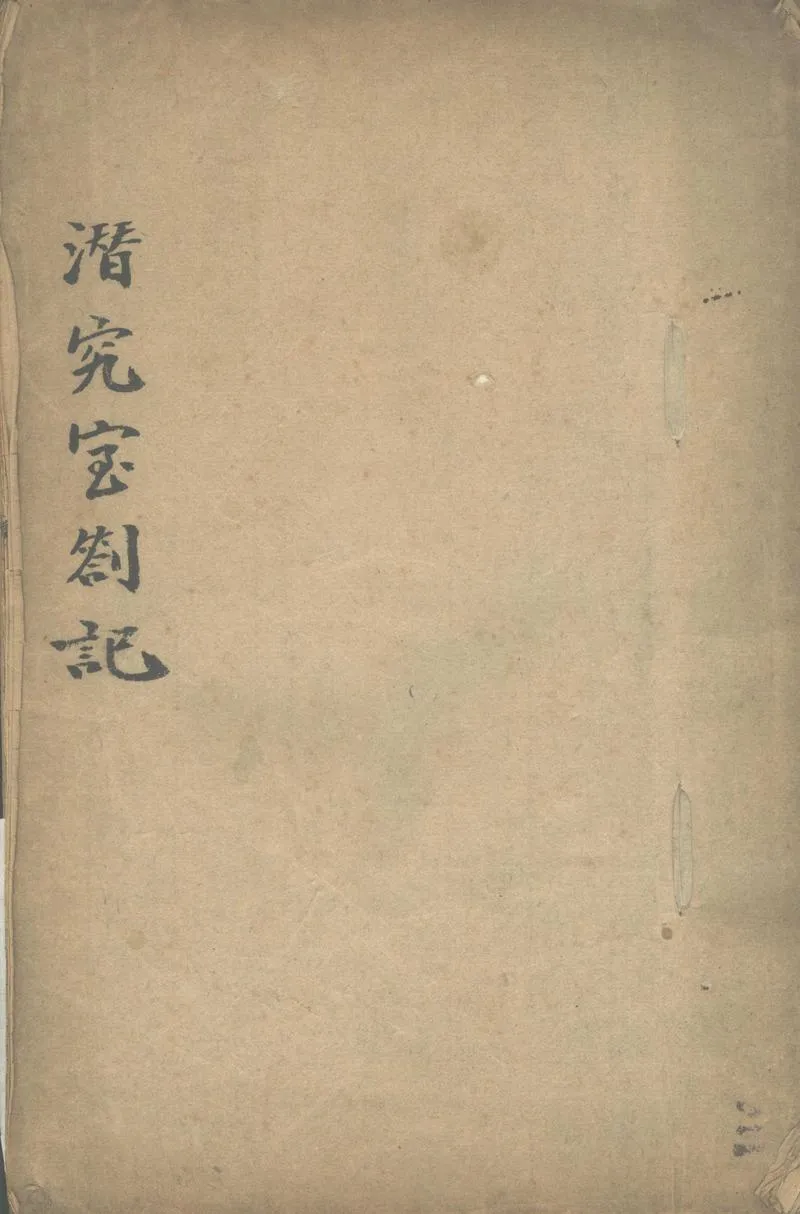 潛究室劄記